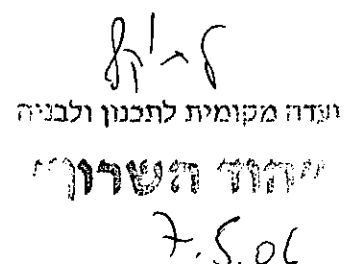 ועדה מקומית לתכנון ולבניה
"הוד השרון"
7.5.06